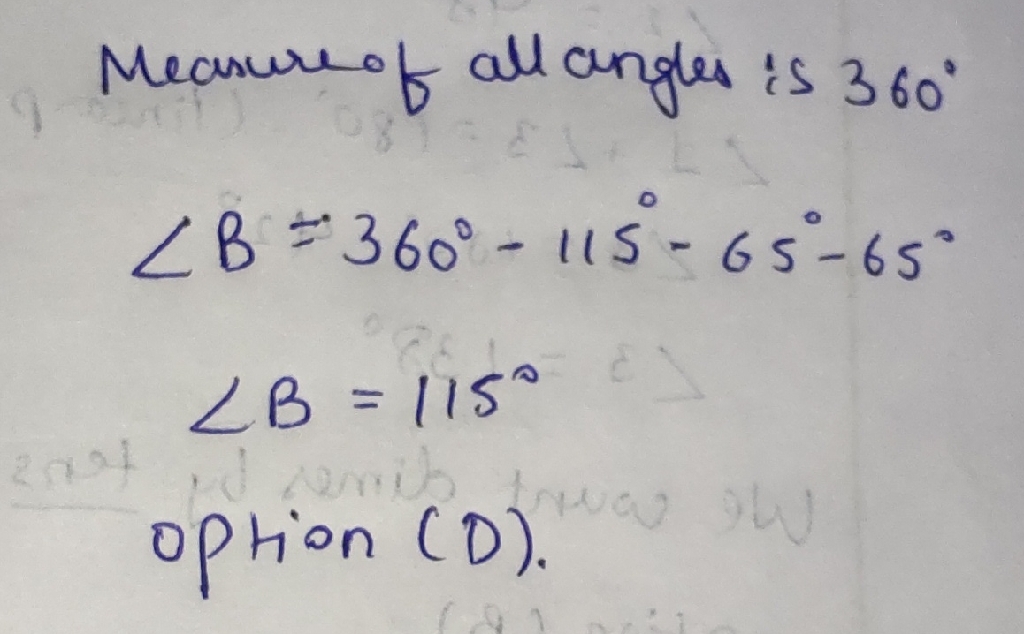 Measure of all angles is 360°
∠B = 360° - 115° - 65° - 65°
∠B = 115°
option (D).